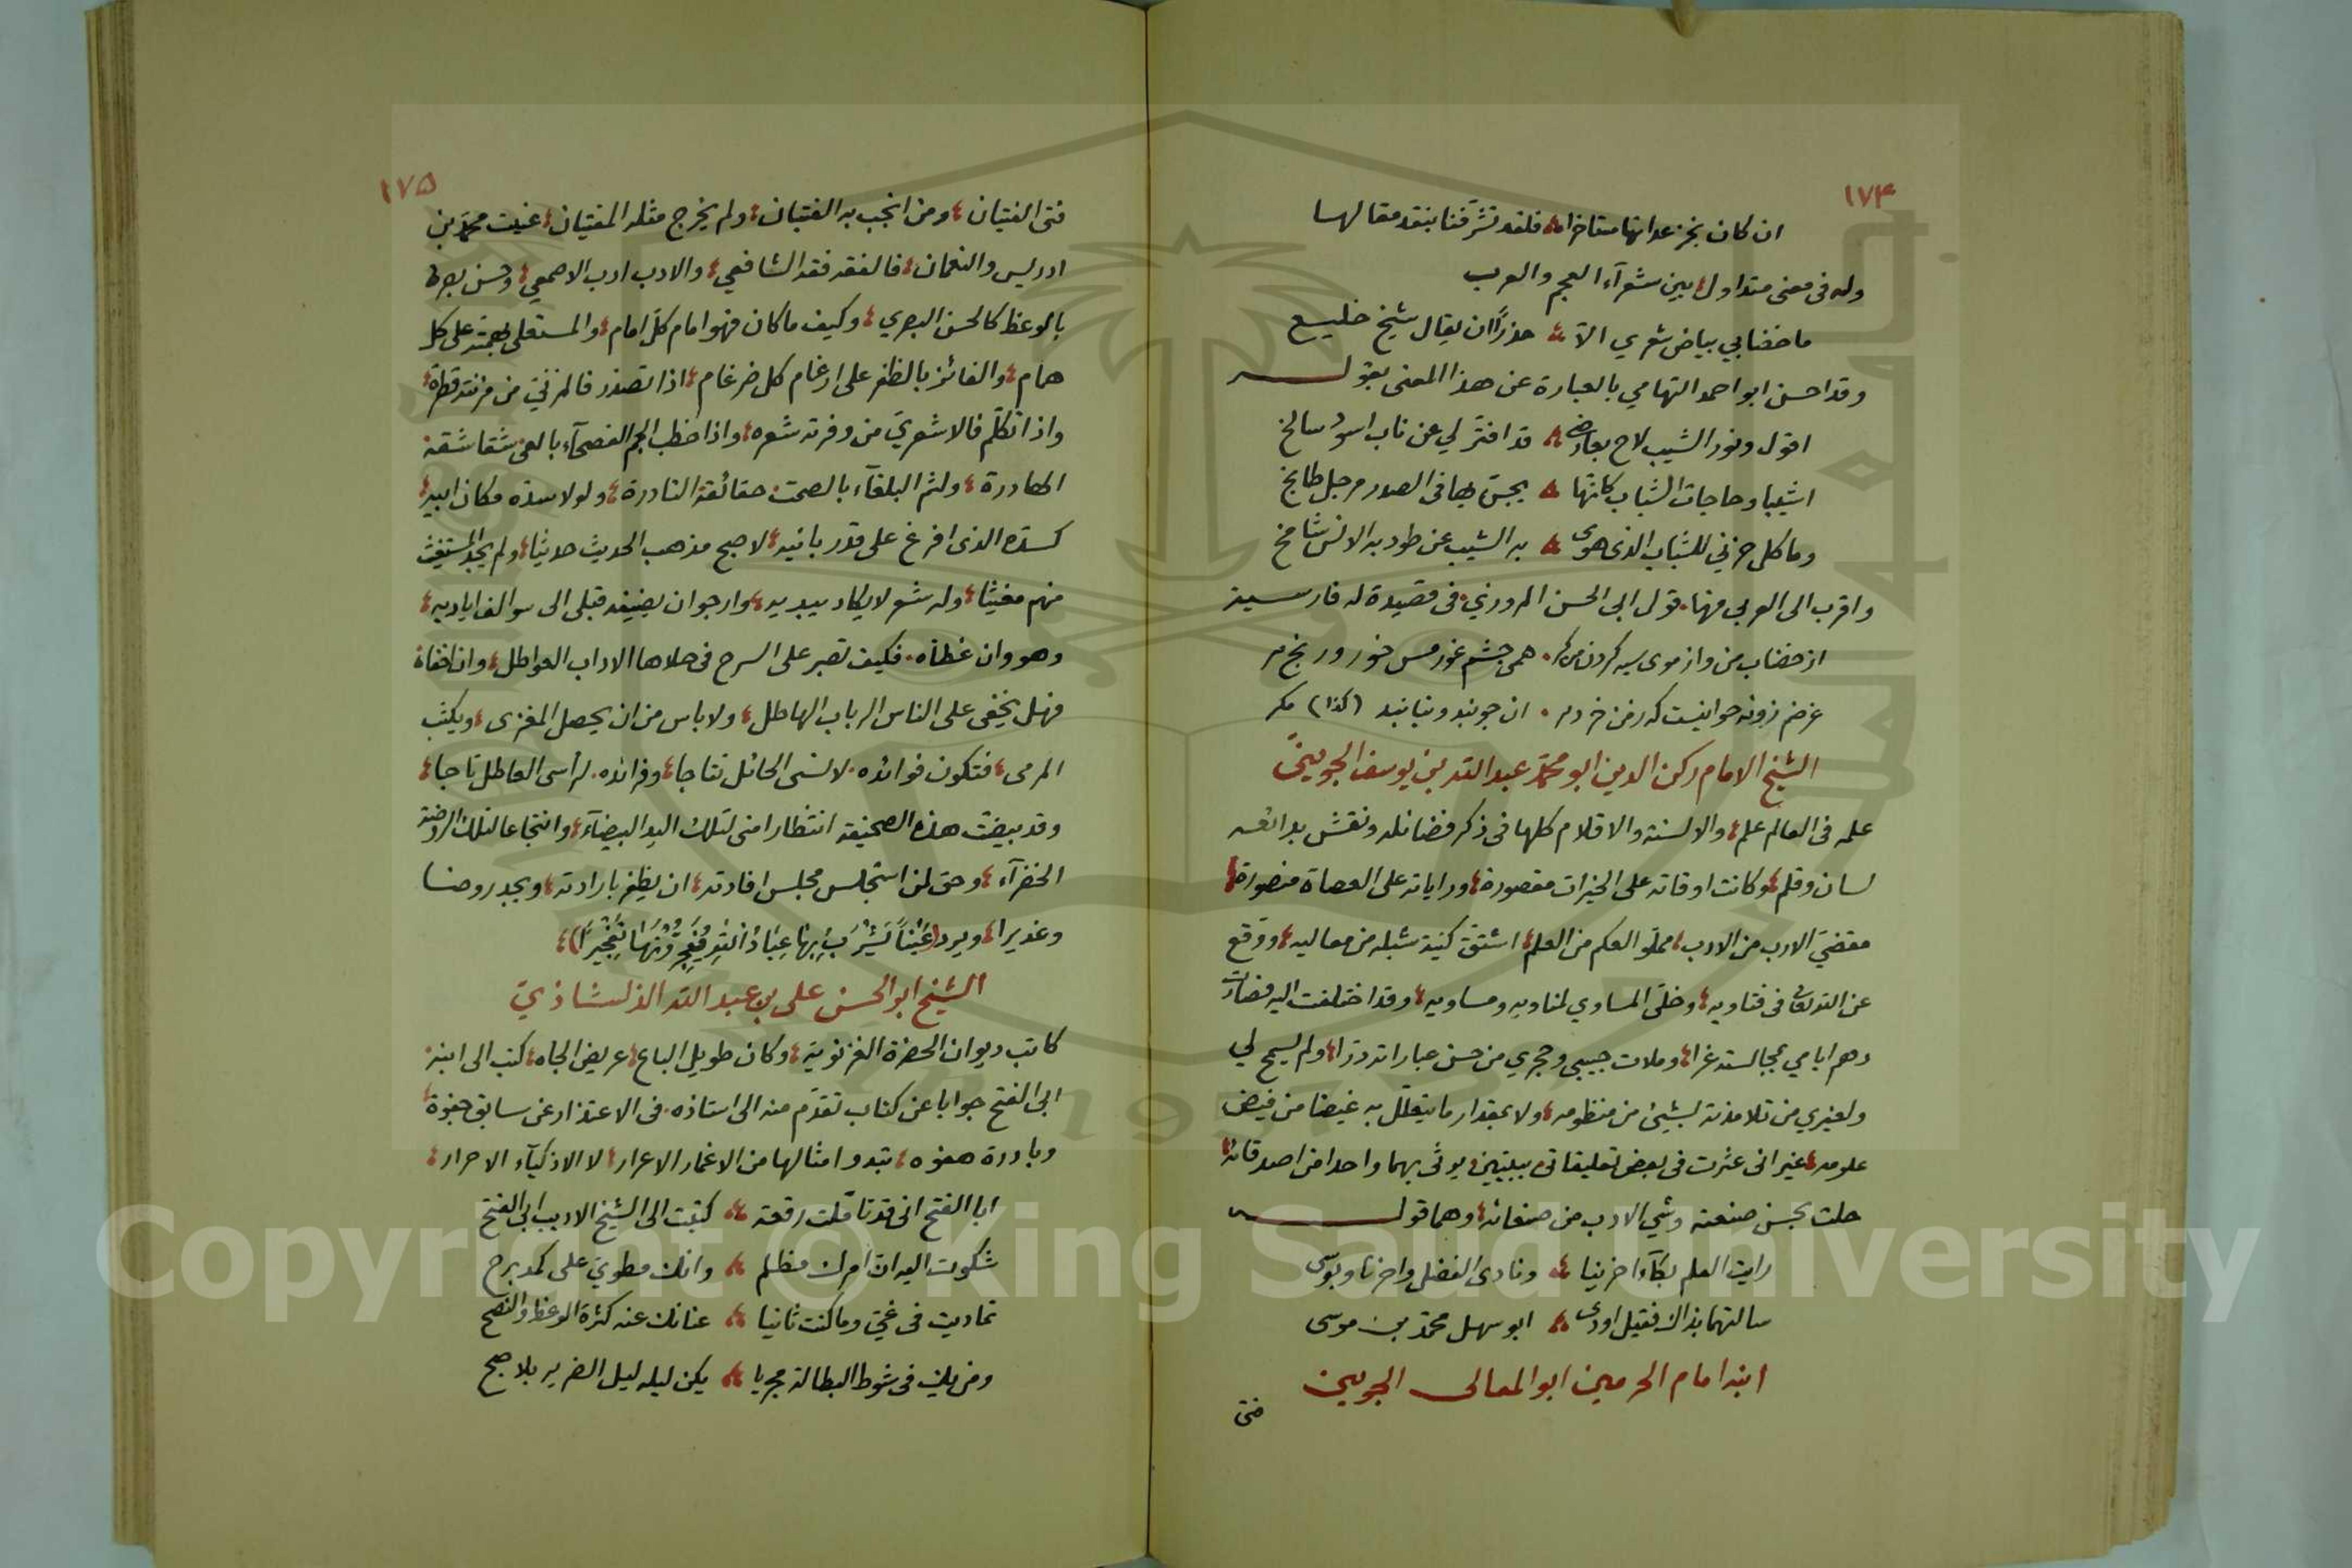 ١٧٤
ان كان بخز عداتها متاخرا فلقد تشرفنا بنقد مقالها
وله فى معنى متداول بين شعرآء العجم والعرب
ما خضابي بياض شعري الا حذرًا ان يقال شيخ خليع
وقد احسن ابو احمد التهامي بالعبارة عن هذا المعنى بقوله
اقول ونور الشيب لاح بعارضي قد افتر لي عن ناب اسود سالخ
اشيبا وحاجات الشباب كانها يجيش بها فى الصدر مرجل طابخ
وما كل حزني للشباب الذى هوى به الشيب عن طود به الانس شامخ
واقرب الى العربي منها قول ابى الحسن المروزي فى قصيدة له فارسية
از خضاب من واز موى سيه كردن من كر همى خشم خورى بيش خور ورنج مبر
غرضم زونه جوانيست كه از من خردم ان جويند ونيابند (كذا) مكر
الشيخ الامام ركن الدين ابو محمد عبد الله بن يوسف الجوينيّ
علمه فى العالم علم والالسنة والاقلام كلها فى ذكر فضائله ونقش بدائعه
لسان وقلم وكانت اوقاته على الخيرات مقصورة وراياته على العصاة منصورة
مقضيّ الارب من الادب مملو العكم من العلم اشتق كنية شبله من معاليه ووقع
عن التوقان فى فتاويه وخلى المساوي لمناويه ومساويه وقد اختلفت اليه فصارت
دهم ايامي بمجالسته غرا وملات جيبي وحجري من حسن عباراته دررا ولم يسمح لي
ولغيري من تلامذته بشيئ من منظومه ولا بمقدار ما يتعلل به غيضا من فيض
علومه غير انى عثرت فى بعض تعليقاتى ببيتين يرثى بهما واحدا من اصدقائه
حلت بحسن صنعته وشي الادب من صنعائه وهما قوله
رايت العلم بكآء حزينا ونادى الفضل واحزنا وبوسى
سالتهما بذاك فقيل اودى ابو سهل محمد بن موسى
ابنه امام الحرمين ابو المعالى الجويني
فتى
١٧٥
فتى الفتيان ومن انجب به الفتيان ولم يخرج مثله المفتيان عنيت محمد بن
ادريس والنعمان فالفقه فقه الشافعي والادب ادب الاصمعي وحسن بصره
بالوعظ كالحسن البصري وكيف ما كان فهو امام كل امام والمستعلى بهمته على كل
همام والفائز بالظفر على ارغام كل ضرغام اذا تصدر فالمزنيّ من مزنته قطرة
واذا تكلم فالاشعريّ من وفرته شعره واذا خطب الجم الفصحآء بالعى شقاشقه
الهادرة ولثم البلغآء بالصمت حقائقه النادرة ولولا سده مكان ابيه
كسده الذى افرغ على قدر بانيه لاصبح مذهب الحديث حديثا ولم يجد المستغيث
منهم مغيثا وله شعر لايكاد يبديه وارجو ان يضيفه قبلى الى سوالف اياديه
وهو وان غطاه فكيف تصبر على السرح فى حلاها الاداب العواطل وان اخفاه
فهل يخفى على الناس الرباب الهاطل ولا باس من ان يحصل المغزى ويكثب
المرمى فتكون فوائده لانسى الحائل نتاجا وفرائده لرأسى العاطل تاجا
وقد بيضت هذه الصحيفة انتظارا منى لتلك اليد البيضآء وانتجاعا لتلك الروضة
الخضرآء وحق لمن استجلس مجلس افادته ان يظفر بارادته ويجد روضا
وغديرا ويرد (عَيْنًا يَشْرَبُ بِهَا عِبَادُ اللهِ يُفَجِّرُونَهَا تَفْجِيرًا)
الشيخ ابو الحسن على بن عبد الله الدلشاذيّ
كاتب ديوان الحضرة الغزنوية وكان طويل الباع عريض الجاه كتب الى ابنه
ابى الفتح جوابا عن كتاب تقدم منه الى استاذه فى الاعتذار عن سابق جفوة
وبادرة هفوه تبدو امثالها من الاغمار الاعرار لا الاذكيآء الاحرار
ابا الفتح انى قد تاملت رقعة كتبت الى الشيخ الاديب ابى الفتح
شكوت اليه ان امرك مظلم وانك مطوي على كمد برح
تماديت فى غيّ وما كنت ثانيا عنانك عنه كثرة الوعظ والنصح
ومن يك فى شوط البطالة مجريا يكن ليله ليل الضرير بلا صبح
Copyright © King Saud University